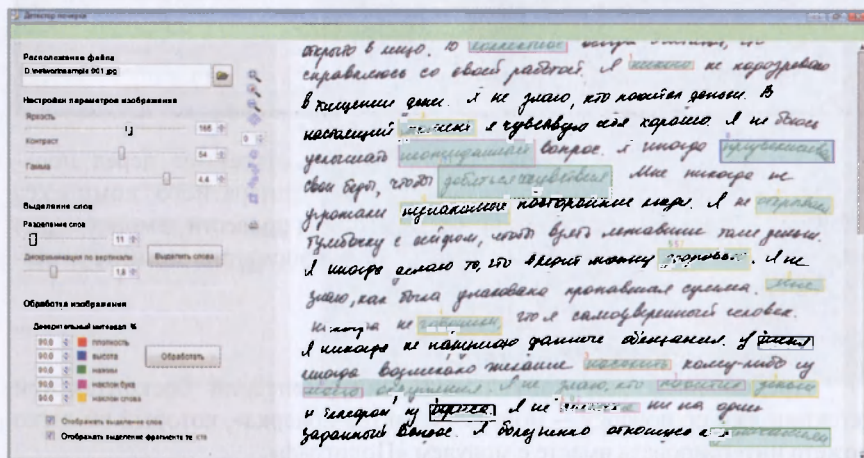 Детектор почерка
Расположение файла
D:\networksample 001.jpg
Настройки параметров изображения
Яркость
168
Контраст
54
0
Гамма
4,4
Выделение слов
Разделение слов
11
Дискриминация по вертикали
1,8
Выделить слова
Обработка изображения
Доверительный интервал %
99.0 плотность
99.0 высота
99.0 нажим
99.0 наклон букв
99.0 наклон слова
Обработать
Отображать выделение слов
Отображать выделение фрагмента те ста
открыто в лицо. То
справляюсь со своей работой. Я не подозреваю
в хищении денег. Я не знаю, кто похитил деньги. В
настоящий момент я чувствую себя хорошо. Я не боюсь
услышать неожиданный вопрос. Я иногда преувеличиваю
свои беды, чтобы добиться сочувствия. Мне никогда не
угрожали незнакомые посторонние люди. Я не открывал
тумбочку с сейфом, чтобы взять лежавшие там деньги.
Я иногда делаю то, что вредит моему здоровью. Я не
знаю, как была упакована пропавшая сумма. Мне
не говорили, что я самоуверенный человек.
Я никогда не нарушаю данные обещания. У меня
иногда возникало желание насолить кому-либо из
моего окружения. Я не знаю, кто похитил деньги
из Я не ни на один
заданный вопрос. Я болезненно отношусь к